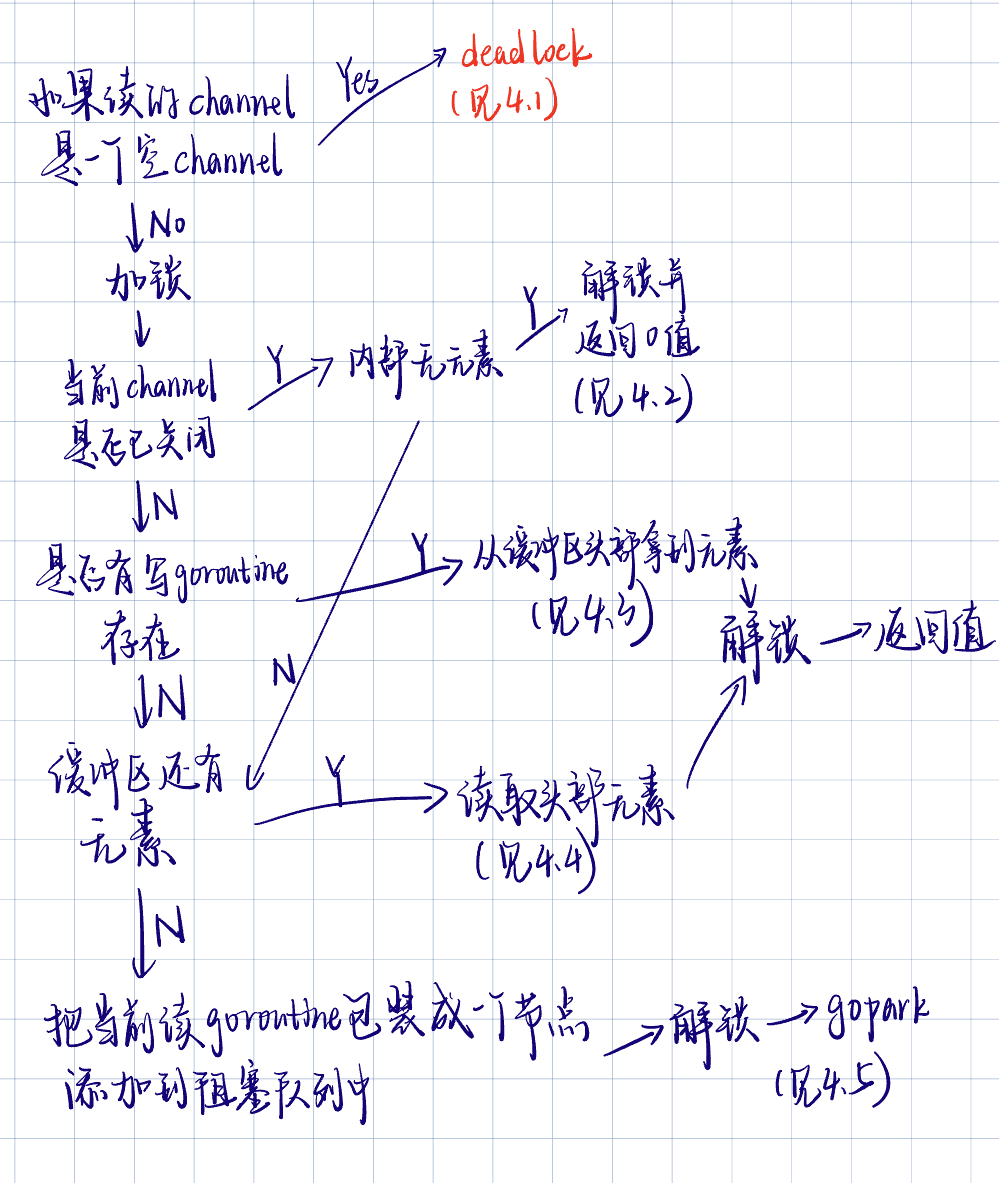 如果读的channel
是一个空channel
Yes
deadlock
(见4.1)
No
加锁
当前channel
是否已关闭
Y
内部无元素
Y
解锁并
返回0值
(见4.2)
N
是否有写goroutine
存在
Y
从缓冲区头部拿到元素
(见4.3)
解锁
返回值
N
N
缓冲区还有
元素
Y
读取头部元素
(见4.4)
N
把当前读goroutine包装成一个节点
添加到阻塞队列中
解锁
gopark
(见4.5)